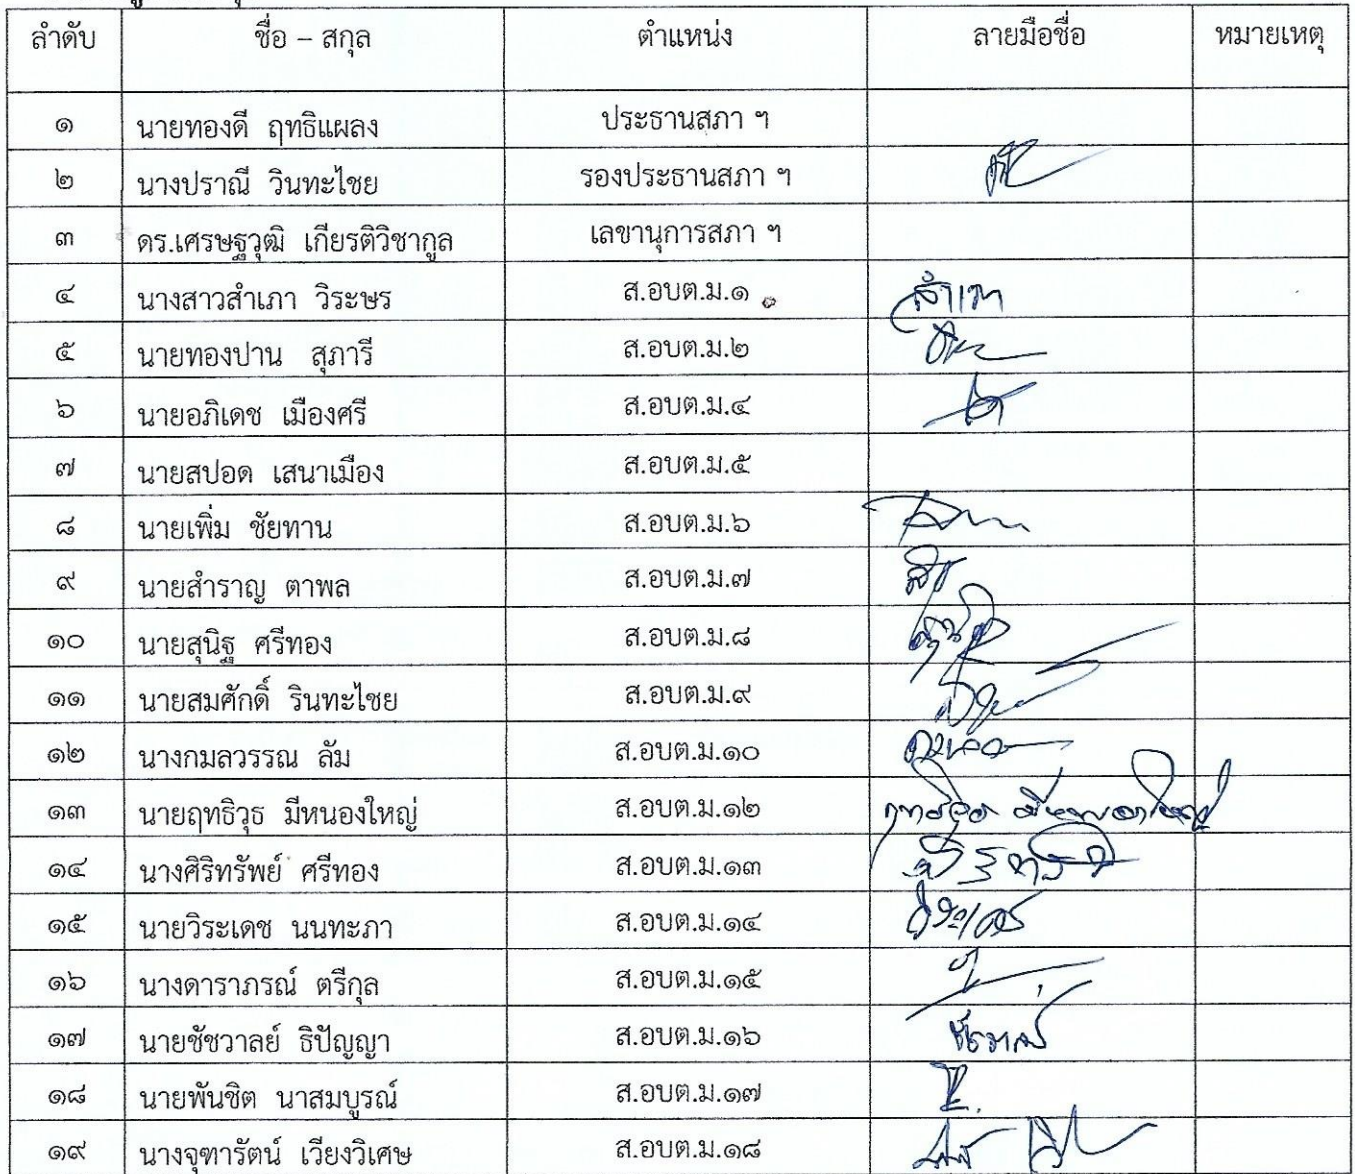 ลำดับ ชื่อ – สกุล ตำแหน่ง ลายมือชื่อ หมายเหตุ
๑ นายทองดี ฤทธิแผลง ประธานสภา ฯ
๒ นางปราณี วินทะไชย รองประธานสภา ฯ
๓ ดร.เศรษฐวุฒิ เกียรติวิชากูล เลขานุการสภา ฯ
๔ นางสาวสำเภา วิระษร ส.อบต.ม.๑ สำเภา
๕ นายทองปาน สุภารี ส.อบต.ม.๒
๖ นายอภิเดช เมืองศรี ส.อบต.ม.๔
๗ นายสปอด เสนาเมือง ส.อบต.ม.๕
๘ นายเพิ่ม ชัยทาน ส.อบต.ม.๖
๙ นายสำราญ ตาพล ส.อบต.ม.๗
๑๐ นายสุนิฐ ศรีทอง ส.อบต.ม.๘
๑๑ นายสมศักดิ์ รินทะไชย ส.อบต.ม.๙
๑๒ นางกมลวรรณ ลัม ส.อบต.ม.๑๐
๑๓ นายฤทธิวุธ มีหนองใหญ่ ส.อบต.ม.๑๒ ฤทธิวุธ มีหนองใหญ่
๑๔ นางศิริทรัพย์ ศรีทอง ส.อบต.ม.๑๓
๑๕ นายวิระเดช นนทะภา ส.อบต.ม.๑๔ วิระเดช
๑๖ นางดาราภรณ์ ตรีกุล ส.อบต.ม.๑๕
๑๗ นายชัชวาลย์ ธิปัญญา ส.อบต.ม.๑๖
๑๘ นายพันชิต นาสมบูรณ์ ส.อบต.ม.๑๗
๑๙ นางจุฑารัตน์ เวียงวิเศษ ส.อบต.ม.๑๘